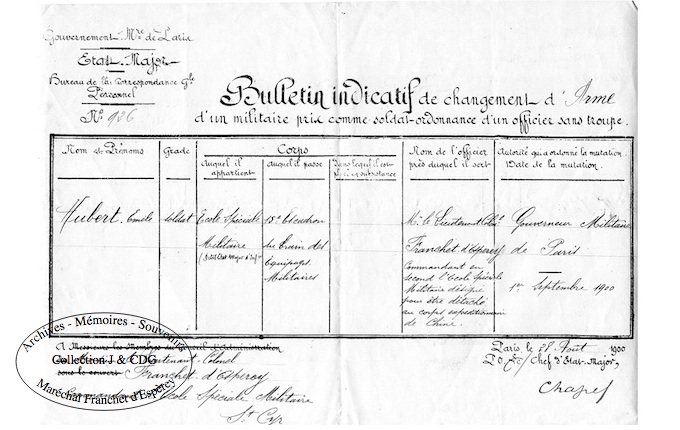 Gouvernement Mre de Paris
Etat-Major
Bureau de la Correspondance Gle
Personnel
No 926
Bulletin indicatif de changement d'Arme
d'un militaire pris comme soldat-ordonnance d'un officier sans troupe.
Nom et Prénoms
Grade
Corps
Auquel il appartient
auquel il passe
dans lequel il est mis en subsistance
Nom de l'officier près duquel il sert
Autorité qui a ordonné la mutation.
Date de la mutation.
Hubert. Emile
soldat
Ecole Spéciale
Militaire
15e Escadron
du train des
Equipages
Militaires
Mr le Lieutenant Colel
Franchet d'Esperey
Commandant en
second l'Ecole Spéciale
Militaire désigné
pour être détaché
au corps expéditionnaire
de Chine.
Gouverneur Militaire
de Paris
1er Septembre 1900
A Messieurs les Membres du Conseil d'Administration
Lieutenant-Colonel
sous le couvert
Franchet d'Esperey
Ecole Spéciale Militaire
St Cyr
Paris, le 28 Août 1900
P.O. Le Chef d'Etat-Major,
Chapel
Archives - Mémoires - Souvenirs
Collection J & CDG
Maréchal Franchet d'Espèrey